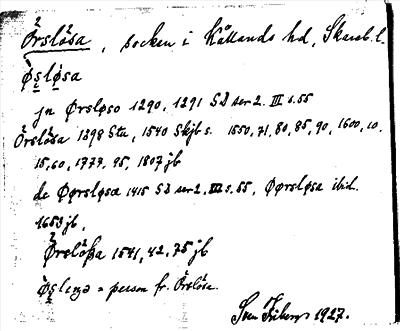 Örslösa, socken i Kållands hd, Skarab.l.
Øsløsa
jn Ørsløso 1290, 1291 SD ser 2. III s. 55
Örslösa 1398 Sta, 1540 Skjb s. 1550, 71, 80, 85, 90, 1600, 10.
15, 60, 1779. 95, 1807 jb
de Ørsløsa 1415 SD ser 2. III s. 55, Ørsløsa ibid.
1653 jb,
Örslößa 1541, 42, 75 jb
= person fr. Örslösa.
1927.